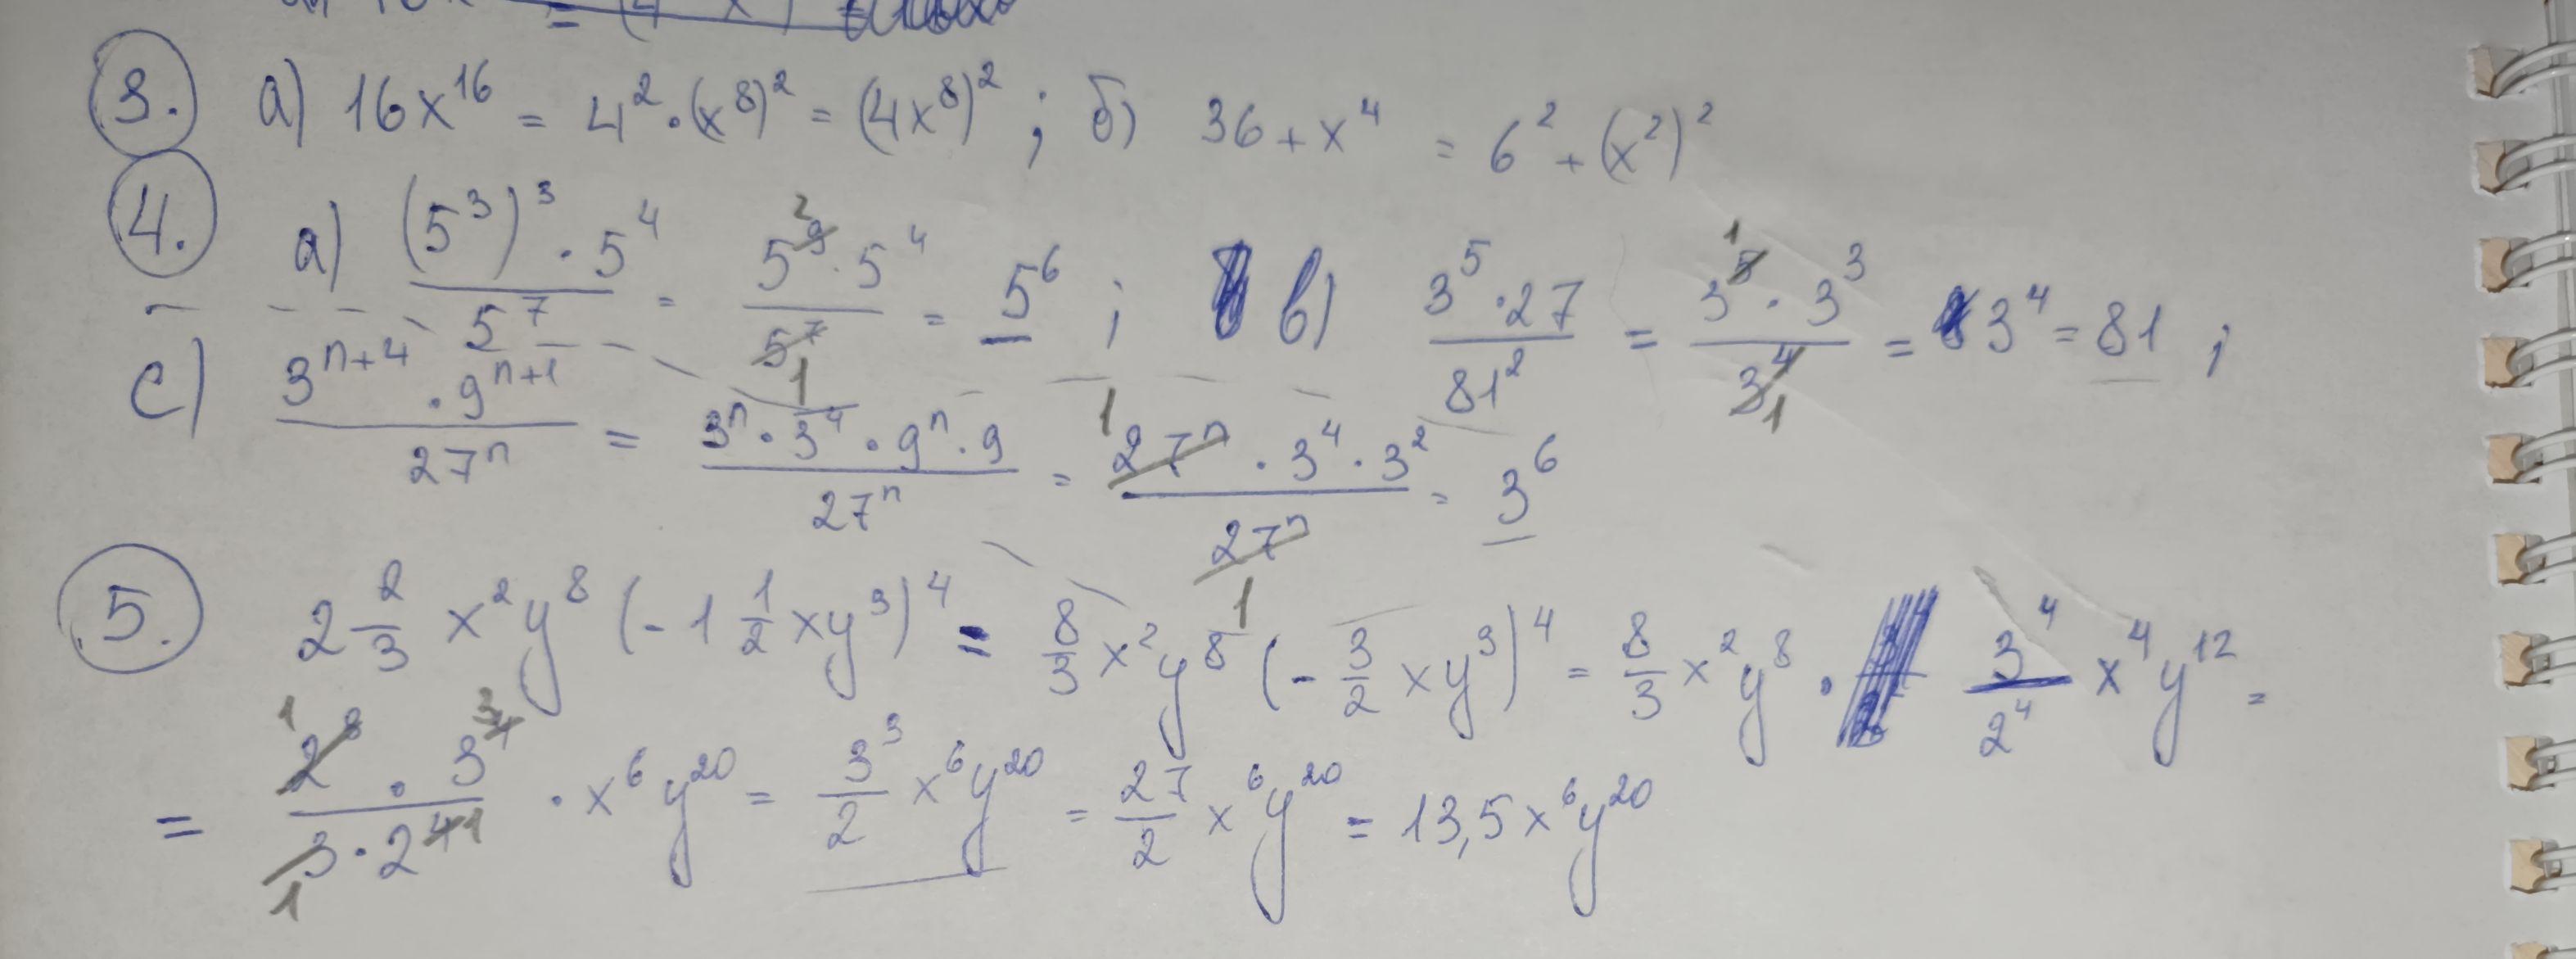 3. а) 16x^16 = 4^2 · (x^8)^2 = (4x^8)^2 ; б) 36 + x^4 = 6^2 + (x^2)^2
4. а) ((5^3)^3 · 5^4)/5^7 = (5^9 · 5^4)/5^7 = 5^6 ; в) (3^5 · 27)/81^2 = (3^5 · 3^3)/3^4 = 3^4 = 81 ;
с) (3^(n+4) · 9^(n+1))/27^n = (3^n · 3^4 · 9^n · 9)/27^n = (27^n · 3^4 · 3^2)/27^n = 3^6
5. 2 2/3 x^2 y^8 (-1 1/2 xy^3)^4 = 8/3 x^2 y^8 (- 3/2 xy^3)^4 = 8/3 x^2 y^8 · 3^4/2^4 x^4 y^12 =
= (2^3 · 3^4)/(3 · 2^4) · x^6 y^20 = 3^3/2 x^6 y^20 = 27/2 x^6 y^20 = 13,5 x^6 y^20